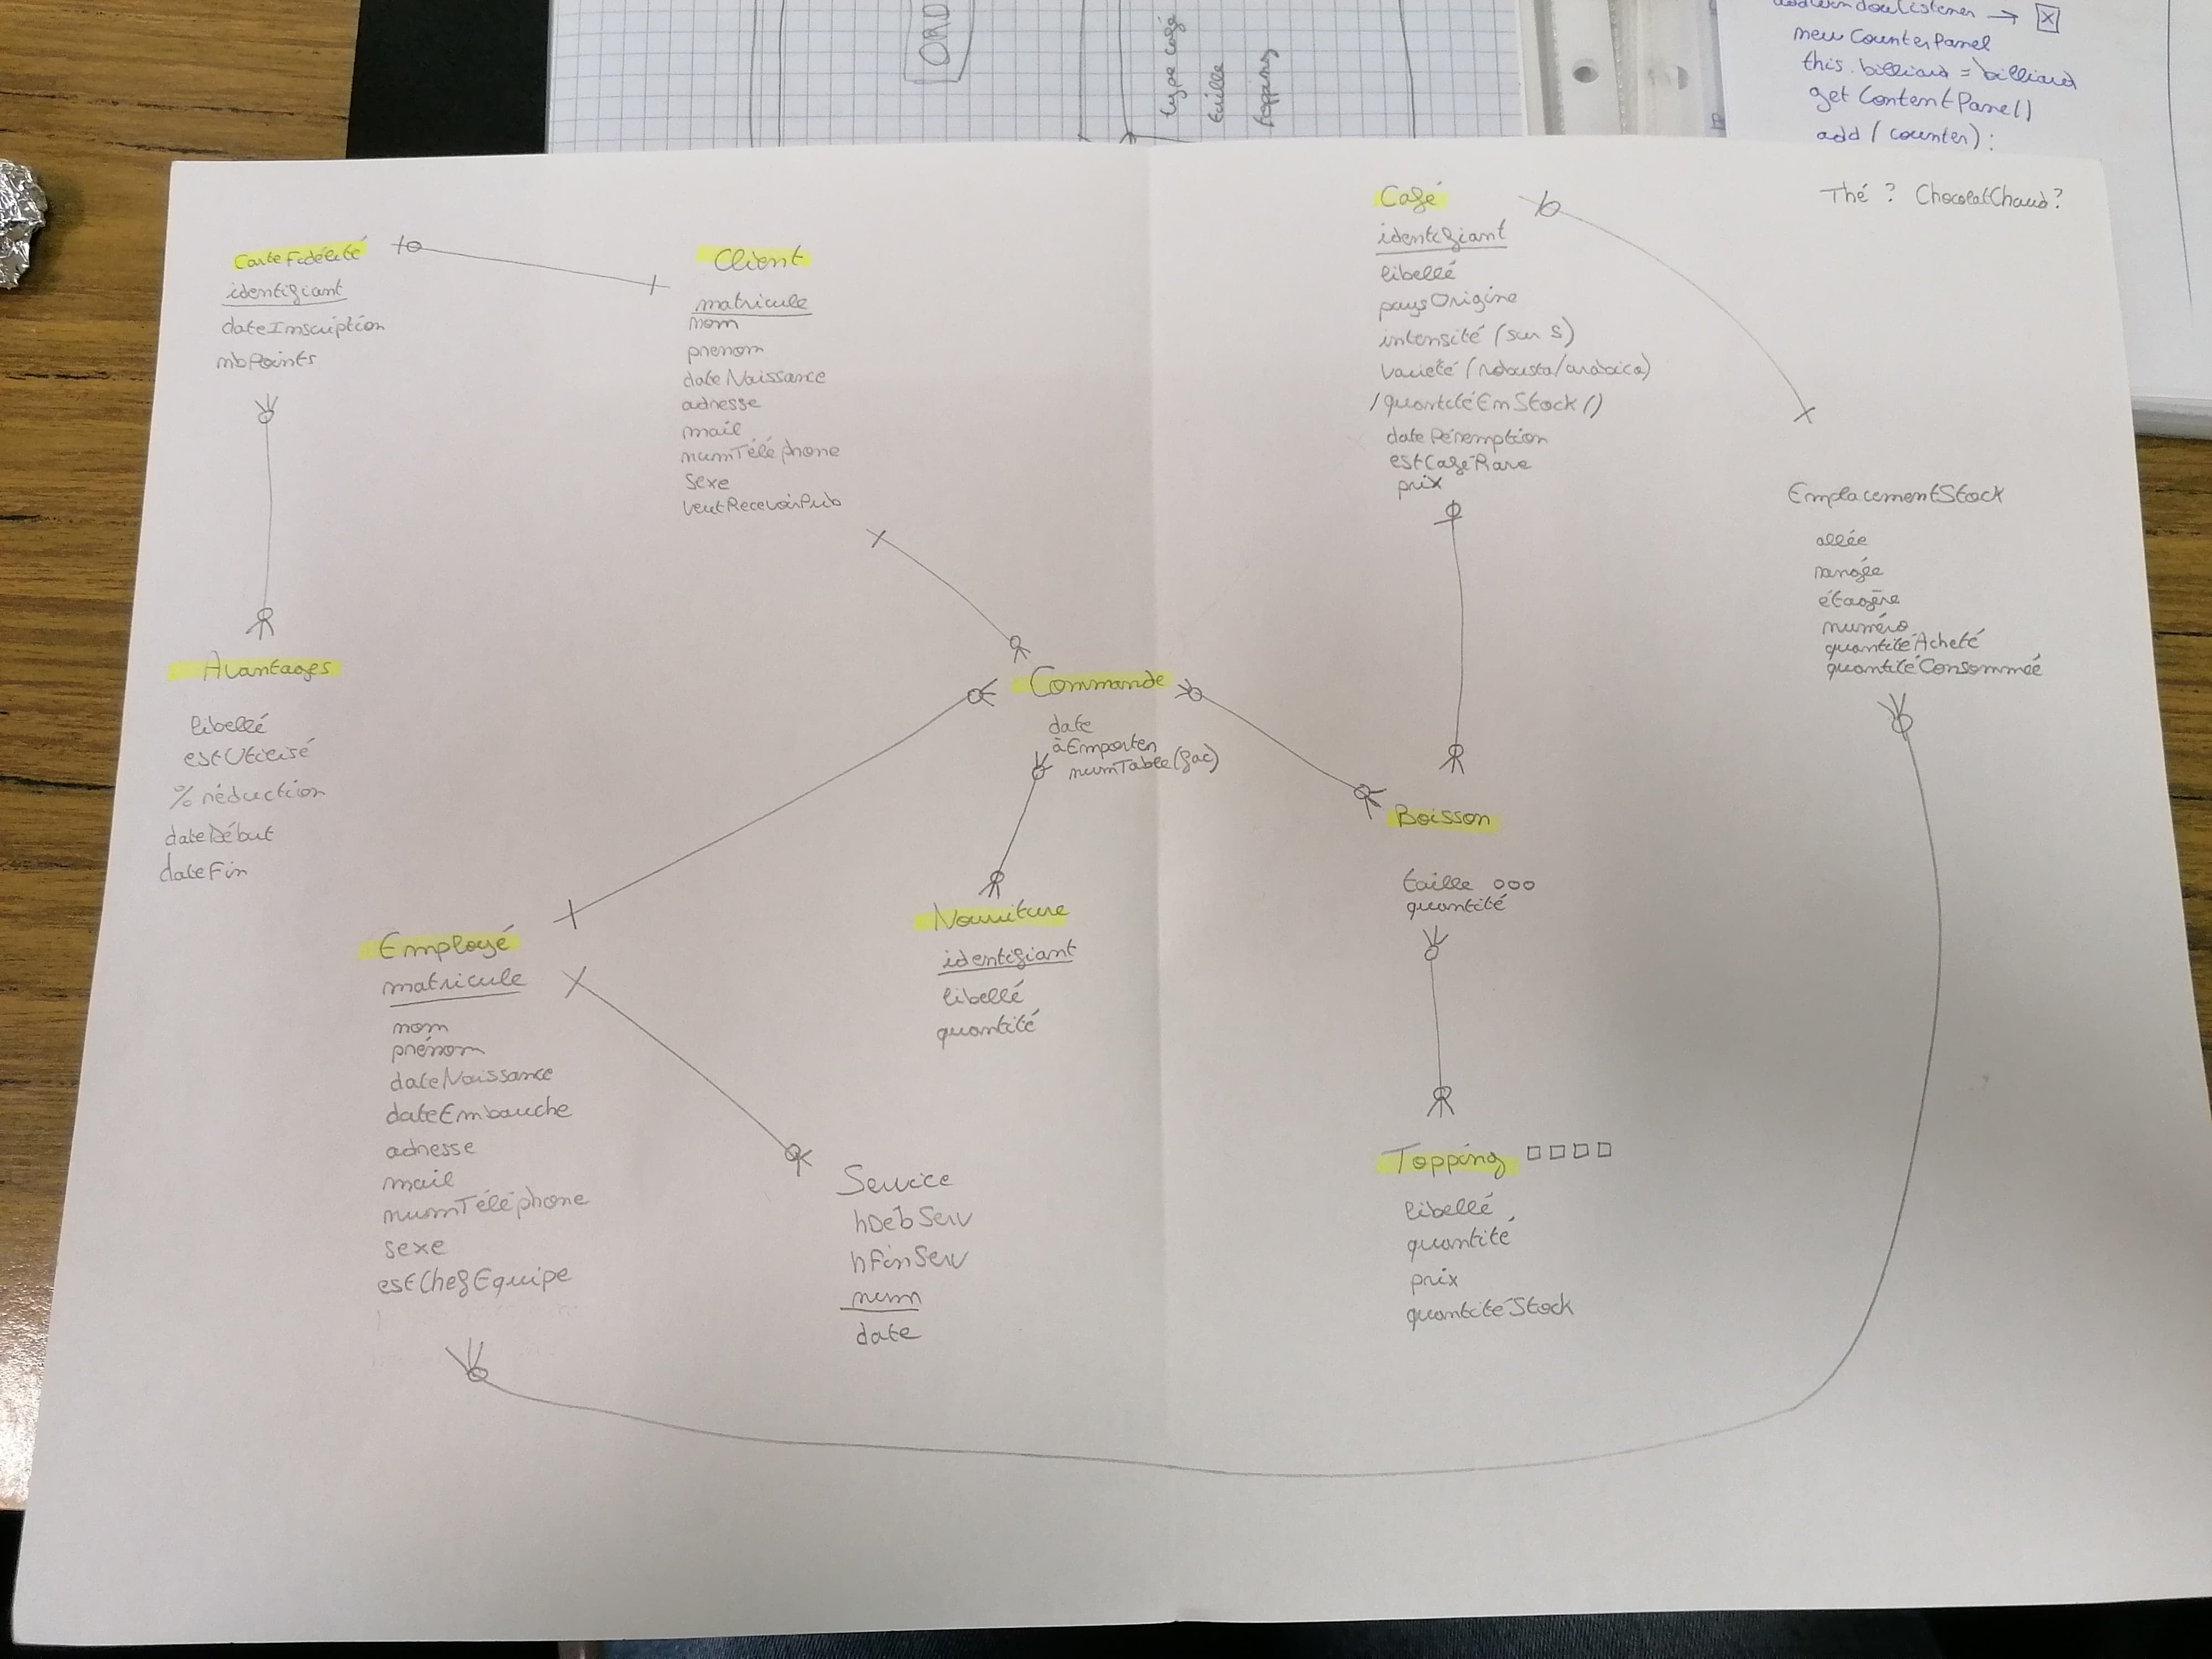 type Café
taille
topping
addWindowListener → ☒
new CounterPanel
this.billiard = billiard
get ContentPanel)
add (counter):
CarteFidélité
identifiant
dateInscription
nbPoints
Client
matricule
nom
prenom
dateNaissance
adresse
mail
numTéléphone
sexe
veutRecevoirPub
Café
identifiant
libellé
paysOrigine
intensité (sur 5)
variété (robusta/arabica)
/quantitéEnStock()
datePéremption
estCaféRare
prix
Thé ? ChocolatChaud?
EmplacementStock
allée
rangée
étagère
numéro
quantitéAcheté
quantitéConsommée
Avantages
libellé
estUtilisé
% réduction
dateDébut
dateFin
Commande
date
àEmporter
numTable(fac)
Boisson
taille ooo
quantité
Employé
matricule
nom
prénom
dateNaissance
dateEmbauche
adresse
mail
numTéléphone
sexe
estChefEquipe
Nourriture
identifiant
libellé
quantité
Service
hDébServ
hFinServ
num
date
Topping □□□□
libellé
quantité
prix
quantitéStock